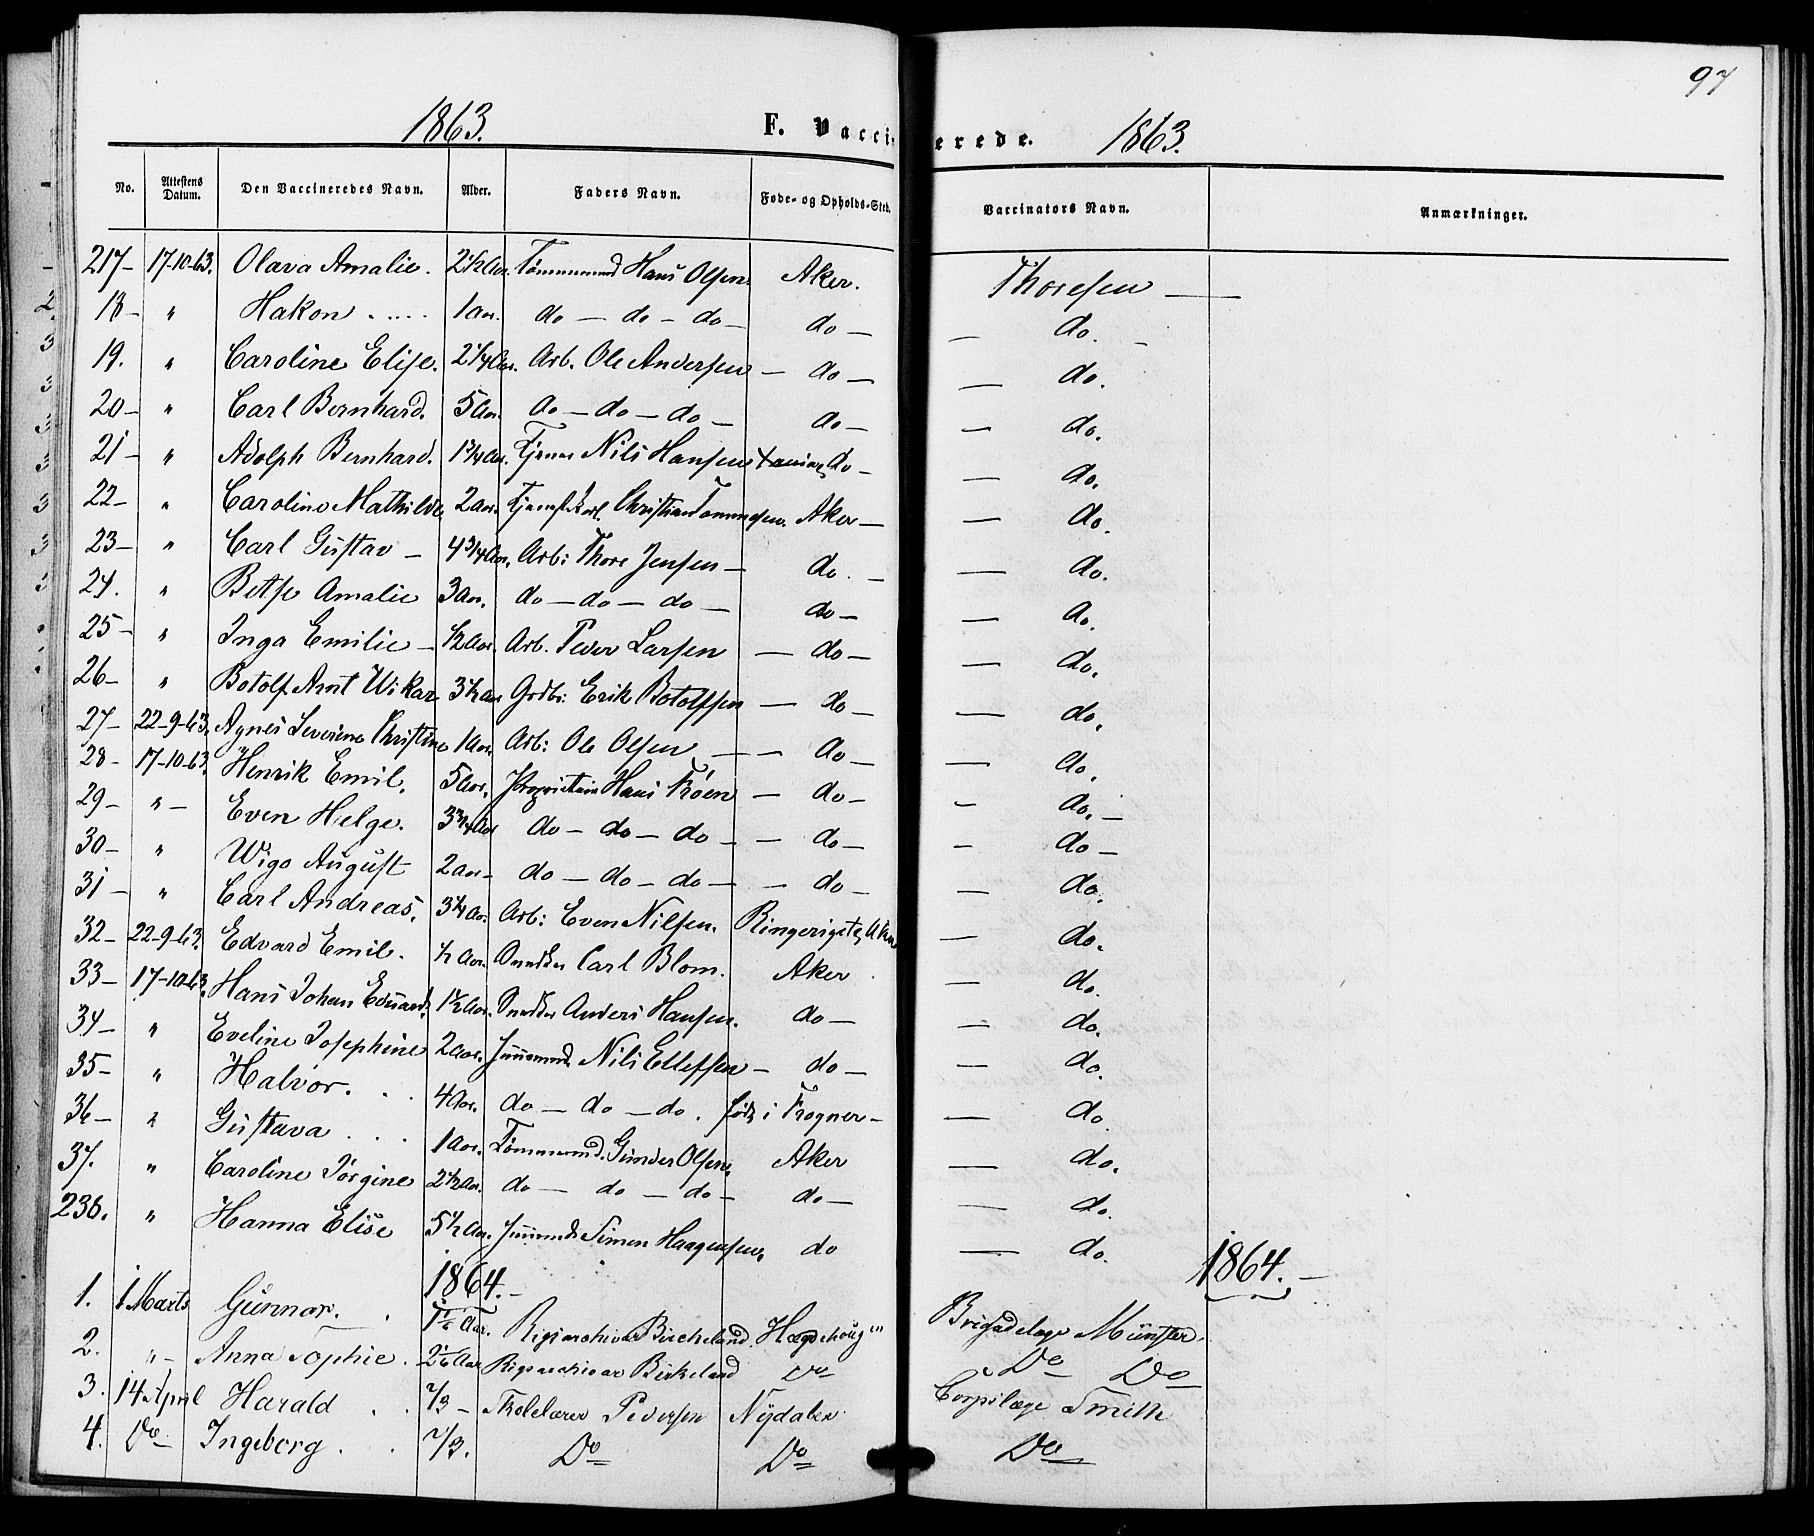 97
1863. F. Vaccinerede. 1863.
No. Attestens Datum. Den Vaccineredes Navn. Alder. Faders Navn. Føde- og Opholds-Sted. Vaccinators Navn. Anmærkninger.
217- 17-10-63. Olava Amalie. 2 1/2 Aar. Tømmermnd Hans Olsen. Aker. Thoresen —
18- " Hakon .... 1 aar. do - do - do - do - — do. -
19. " Caroline Elise. 2 1/4 Aar. Arb. Ole Andersen - do - — do.
20- " Carl Bernhard. 5 Aar. do - do - do - do - — do.
21- " Adolph Bernhard. 1 3/4 Aar. Tjener Nils Hansen do - — do.
22- " Caroline Mathilde 2 aar. Christian Tommesen. Aker - — do.
23- " Carl Gustav - 4 3/4 Aar. Arb: Thore Jensen - do. - — do.
24. " Betsy Amalie 3 Aar. do - do - do - do - — do.
25- " Inga Emilie - 1/2 Aar. Arb. Peder Larsen - do - — do.
26- " Botolf Arnt Wikar 3 1/2 Aar Grdbr: Erik Botolfsen - do - — do.
27- 22-9-63. Agnes Severine Christine 1 Aar. Arb: Ole Olsen - - do - — do.
28- 17-10-63. Henrik Emil. 5 Aar. Proprietair Hans Frøen - do - — do. -
29- "- Even Helge. 3 3/4 Aar do - do - do - - do - - do -
30- " Wigo August 2 aar- do - do - do - - do - — do.
31- " Carl Andreas. 3 1/4 Aar. Arb: Even Nilsen. Ringeriget, Aker — do.
32- 22-9-63. Edvard Emil. 1/2 Aar. Snedker Carl Blom. Aker. — do.
33- 17-10-63. Hans Johan Edvard. 1 1/2 Aar. Snedker Anders Hansen. do - — do.
34- " Eveline Josephine 2 aar. Nils Ellefsen - do - — do.
35- " Halvor. . . 4 Aar. do - do - do. født i Frogner - — do.
36- " Gustava . . . 1 Aar. Tømmermd. Gunder Olsen. Aker — do.
37. " Caroline Jørgine 2 1/2 Aar. do - do - do - do - — do.
236. " Hanna Elise 5 1/2 Aar. Simen Haagensen. do — do.
1864.- 1864. -
1. 1 Marts Gunnar. . Aar. Rigsarchivar Bircheland. Hægdehougen Brigadelæge Münster.
2. "- Anna Sophie. Aar Rigsarchivar Birkeland Do Do Do
3. 14 April Harald . . 2/3 - Skolelærer Pedersen Nydalen. Corpslæge Smith
4. Do- Ingeborg . . 2/3. Do Do Do